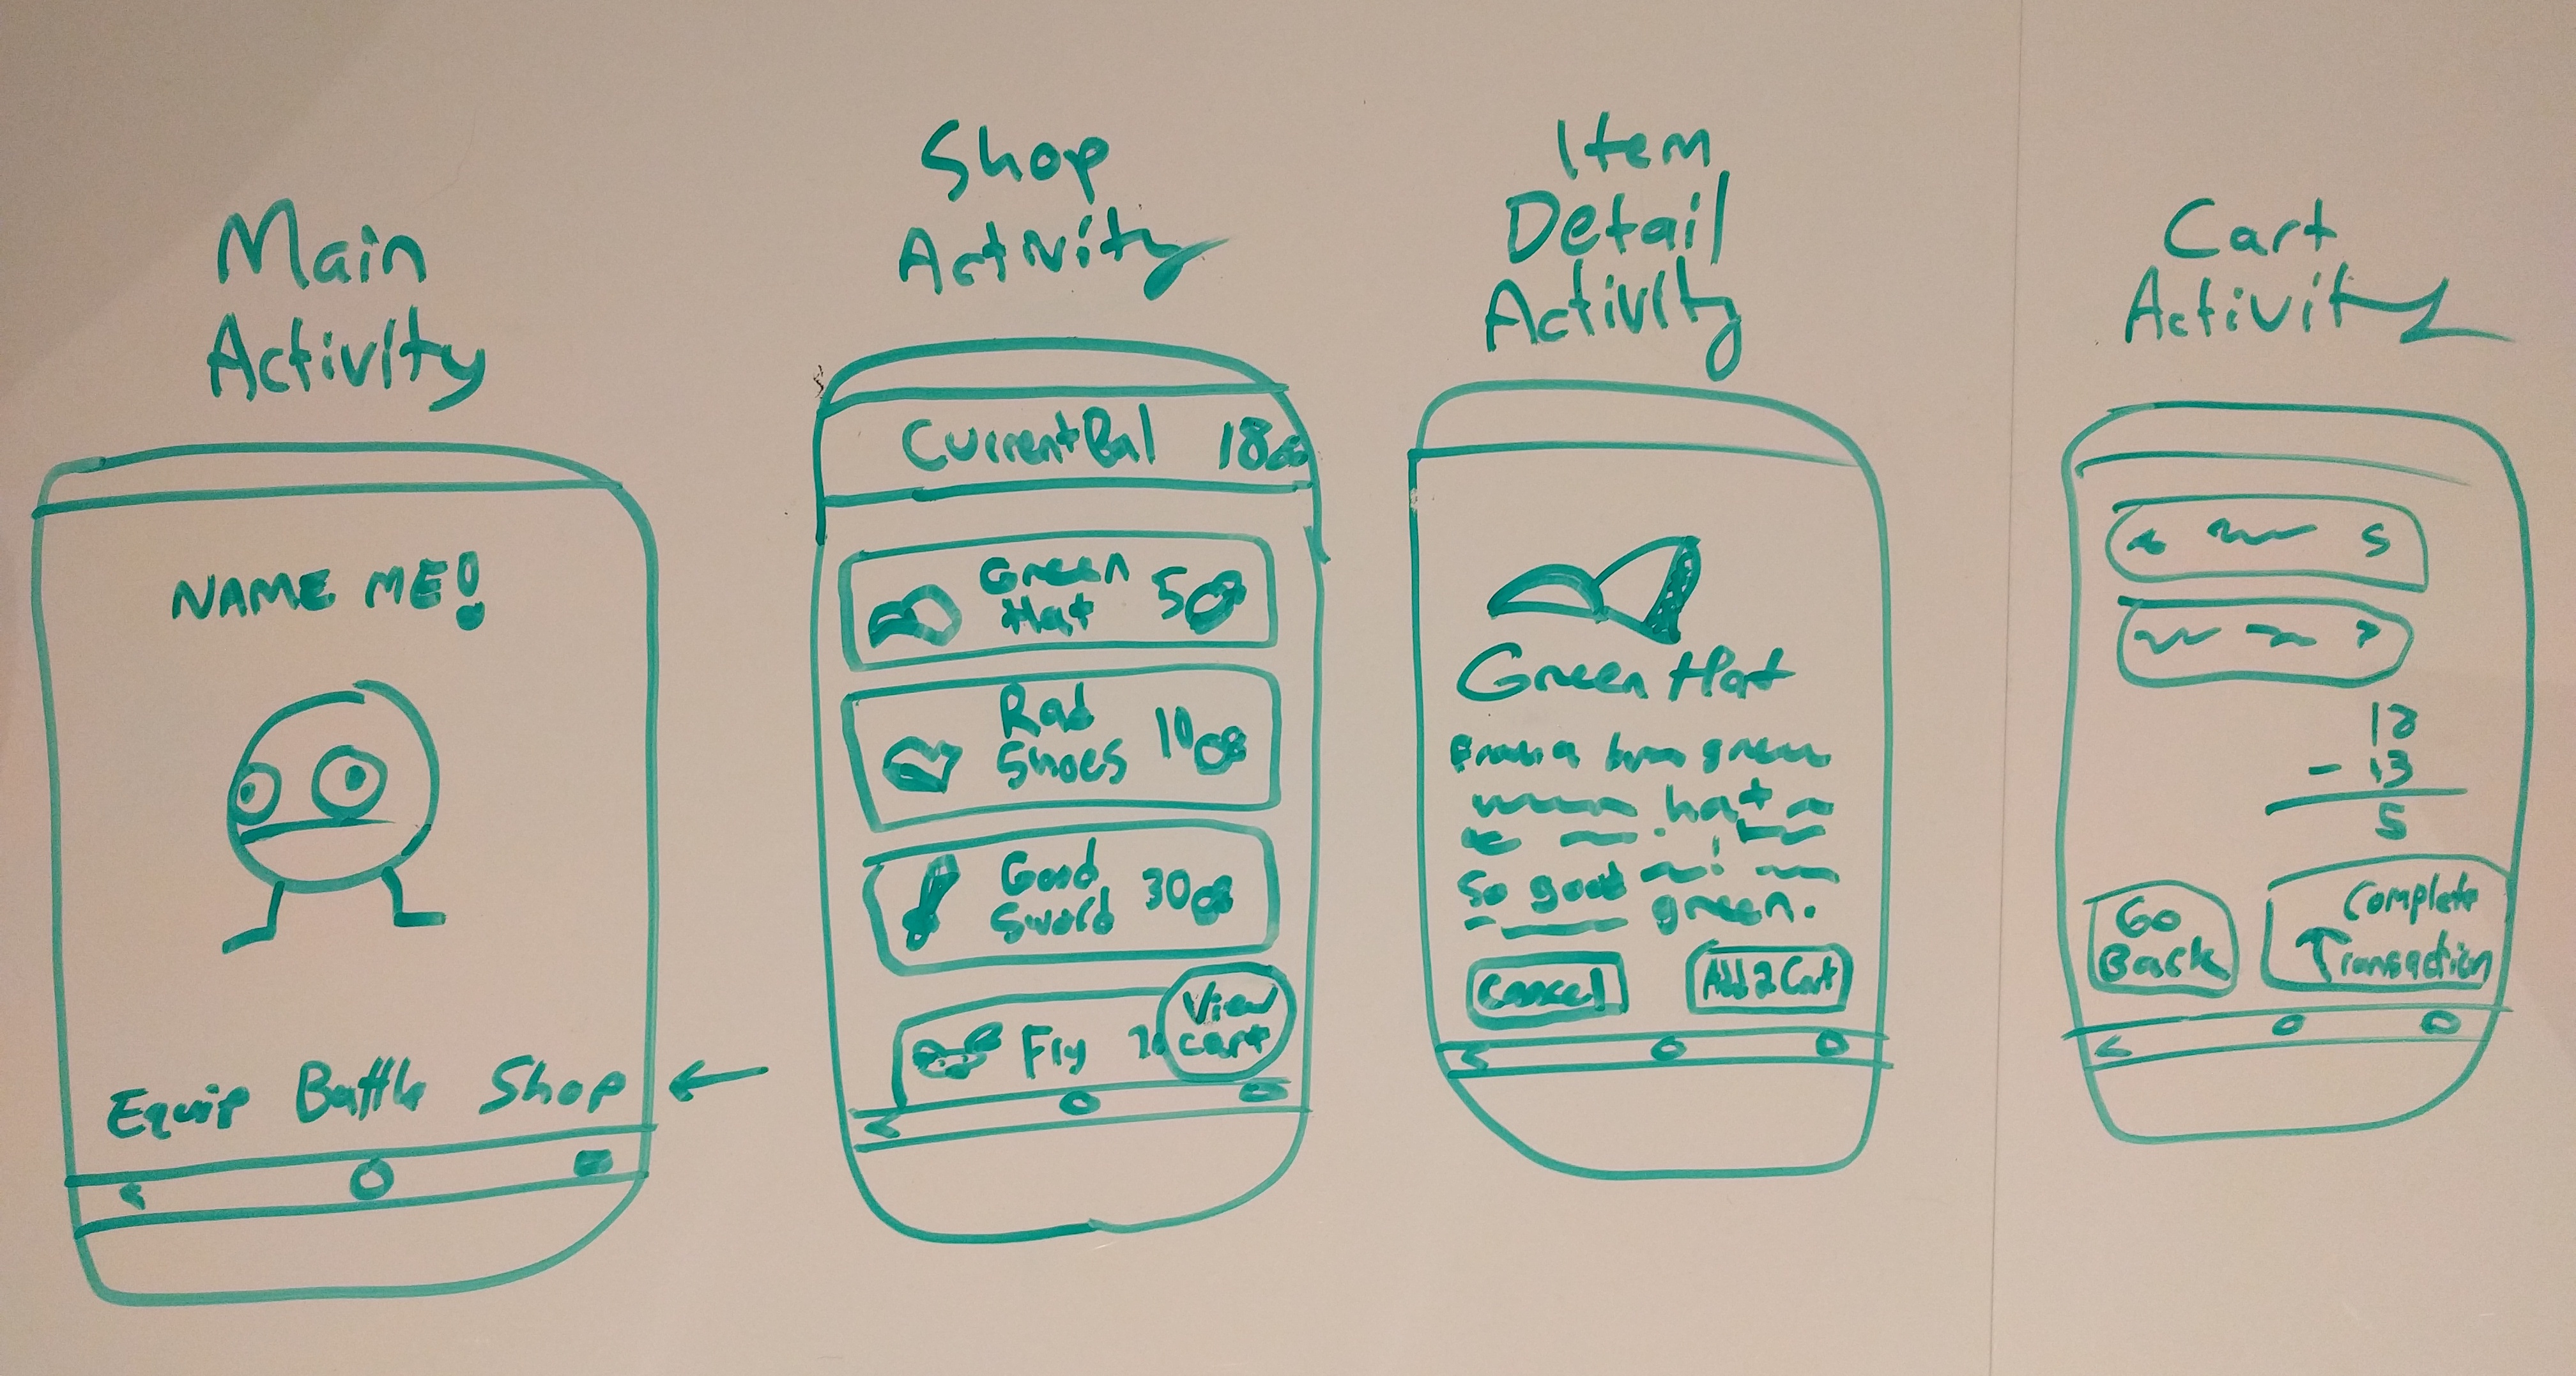 Main
Activity
NAME ME!
Equip Battle Shop
Shop
Activity
Current Bal 18
Green
Hat 5
Rad
Shoes 10
Good
Sword 30
Fry
View
cart
Item
Detail
Activity
Green Hat
green
hat
So good
green.
Cancel Add 2 Cart
Cart
Activity
5
18
- 13
5
Go
Back
Complete
Transaction